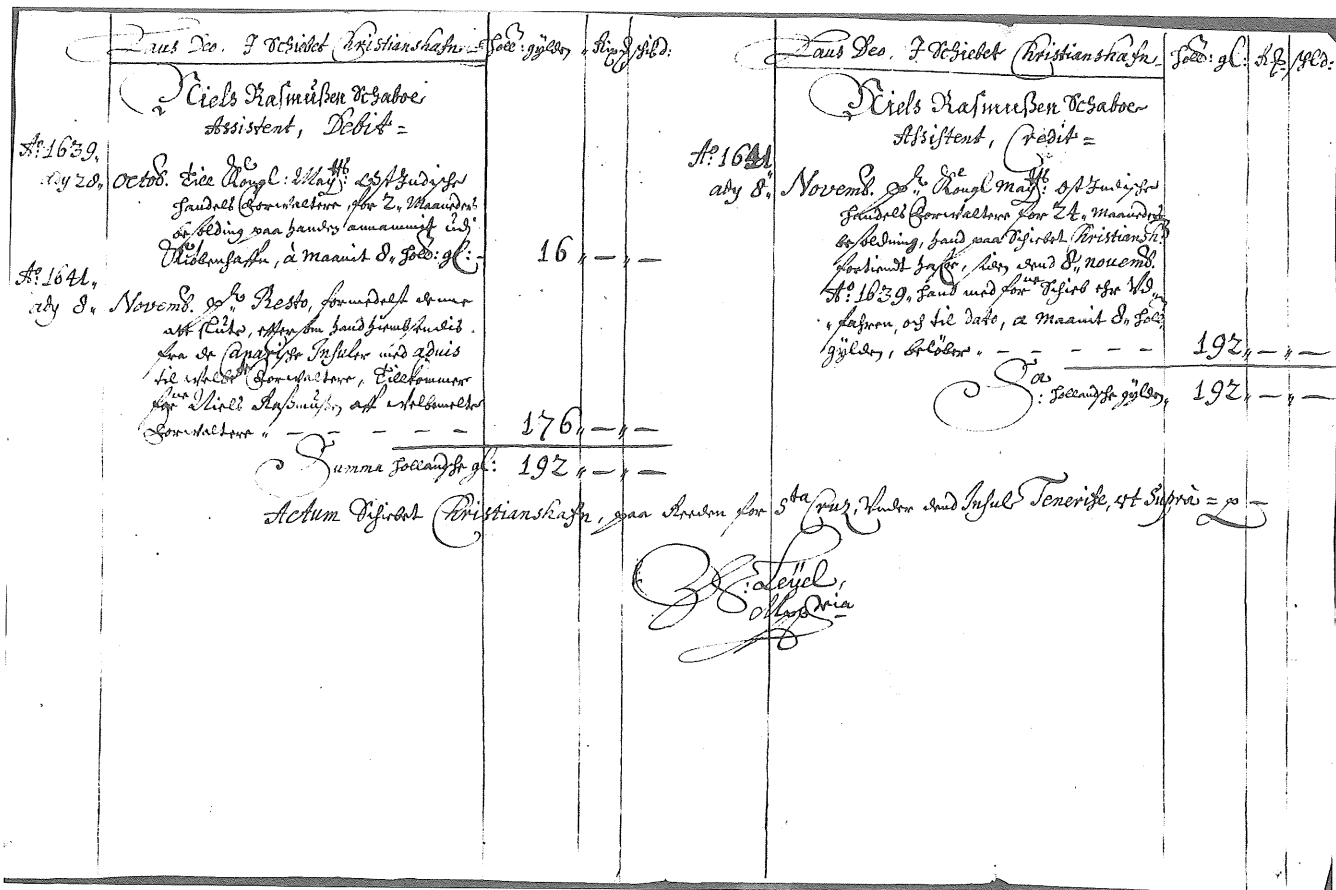 Laus Deo. J Schiebet Christianshafn holl: gÿlden Rx ß schild:
Niels Rasmußen Schaboe
Assistent, Debit =
Aº. 1639.
ady 28. octob. Till Kongl: Maytts: Ost Indische
handels Forwaltere, for 2. Maaneders
besolding paa handen annammit udj
Kiøbenhaffn, à Maanit 8. holl: gl: 16 " — " —
Aº. 1641.
ady 8. Novemb. pr Resto, formedelst denne
att slute, efftersom hand hiemsendis
fra de Canarische Insuler med aduis
til welb:de Forwaltere, Tillkommer
for:ne Niels Raßmußen aff welbemelte
Forwaltere " — — — — — 176 " — " —
Summa hollandsche gl: 192 " — " —
Laus Deo. J Schiebet Christianshafn holl: gl: Rx ß schld:
Niels Rasmußen Schaboe
Assistent, Credit =
Aº. 1641
ady 8. Novemb. pr Kongl Maytts: Ost Indische
handels Forwaltere for 24. Maaneders
besoldning, hand paa Schiebet Christiansh:
fortient hafr, siden dend 8. novemb.
Aº. 1639. hand med forne Schieb ehr Vd
fahren, och til dato, a Maanit 8. holl
gÿlden, beløber " — — — — — 192 " — " —
Sa: hollandsche gÿlden, 192 " — " —
Actum Schiebet Christianshafn, paa Reeden for Sta Cruz, Vnder dend Insul Tenerife, vt Supra = p —
Leÿel,
Mppria